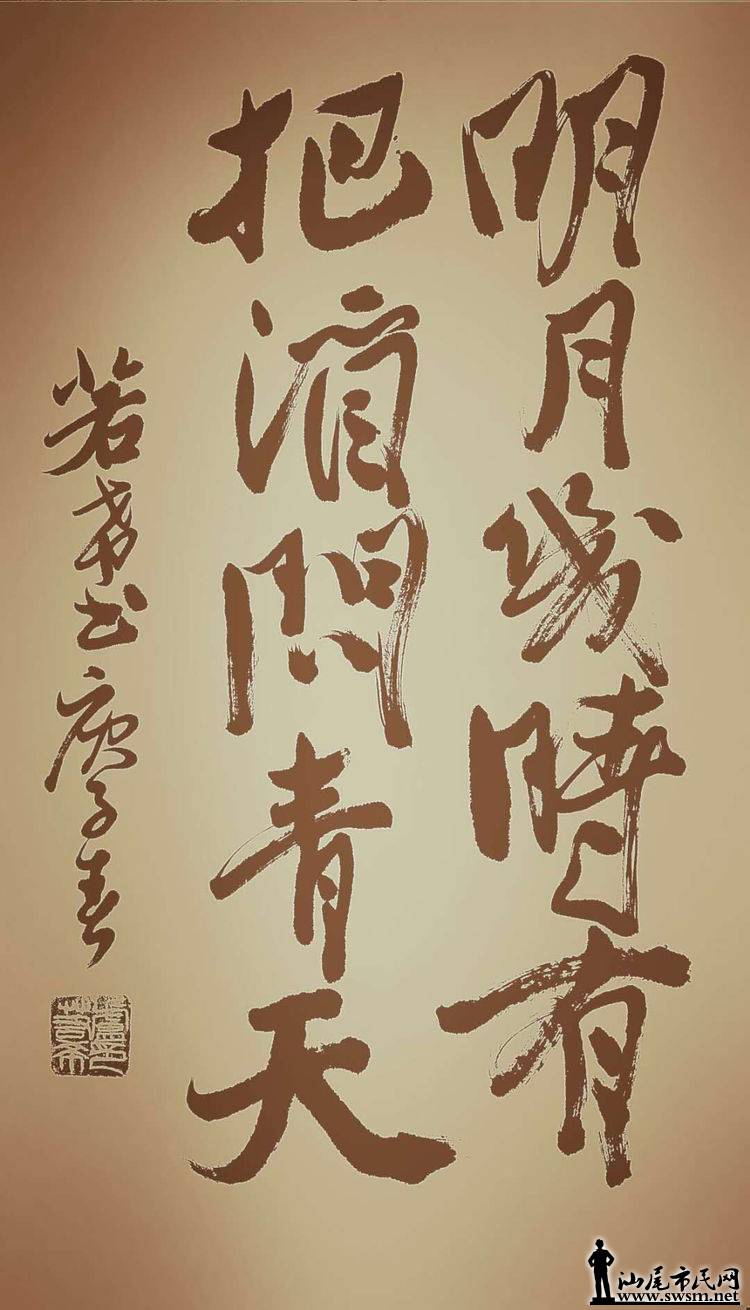 明月几時有
把酒問青天
若希书庚子春
汕尾市民网
www.swsm.net